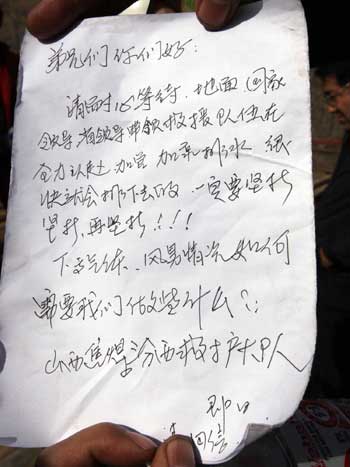 弟兄们你们好：
请耐心等待，地面国家
领导，省领导带领救援队伍在
奋力以赴加官加泵排水 很
快就会排下去的 一定要坚持
坚持，再坚持！！！
下面气体、风量情况如何
需要我们做些什么？
山西焦煤汾西救护大队人
即日
回信